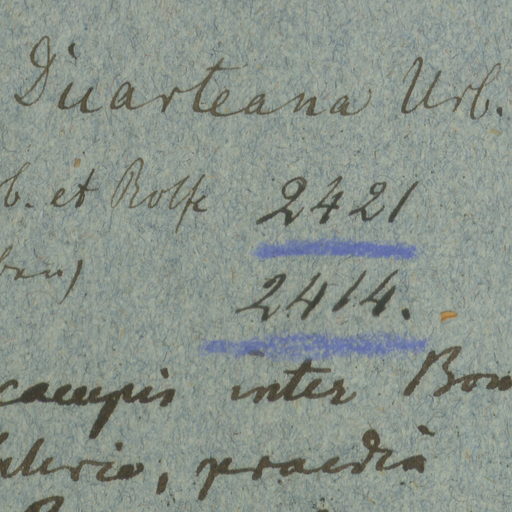 Duarteana Urb.
b. et Rolfe 2421
ban)
2414.
campis inter Bom
praedia